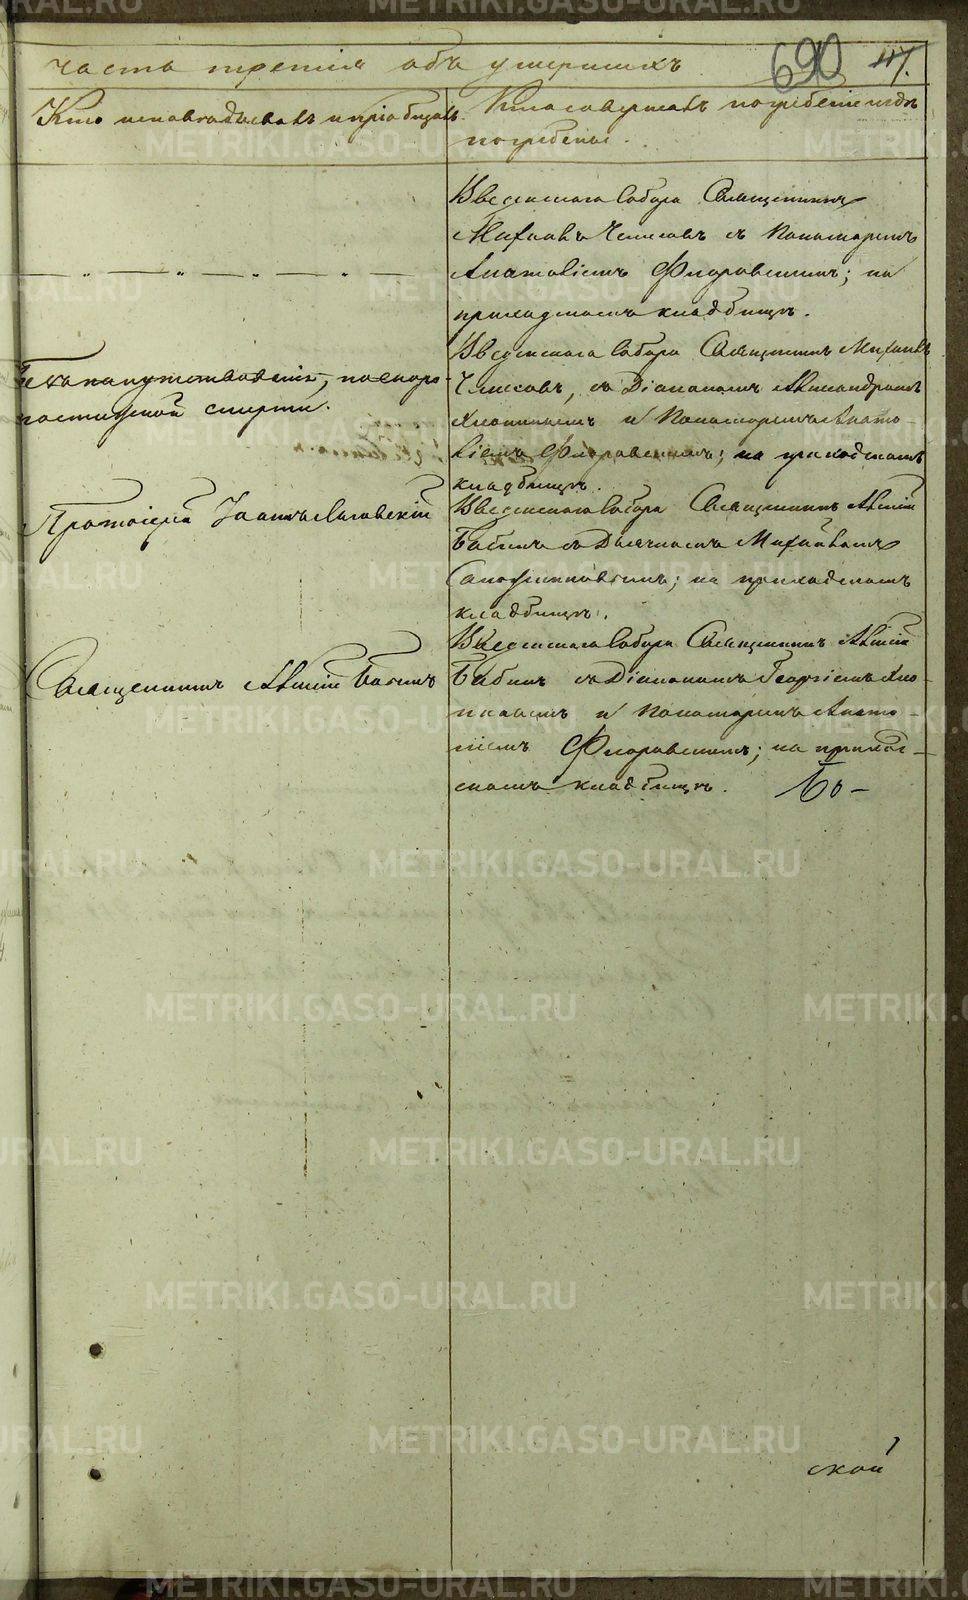 часть третія объ умершихъ
690
Кто исповѣдывалъ и пріобщалъ.
Кто совершалъ погребеніе и гдѣ
погребены.
Введенскаго Собора Священникъ
Михаилъ съ Пономаремъ
Анатоліемъ Флоровскимъ; на
приходскомъ кладбищѣ.
Безъ напутствованія, по скоро-
постижной смерти.
Введенскаго Собора Священникъ Михаилъ
съ Діакономъ Александромъ
и Пономаремъ Анато-
ліемъ Флоровскимъ; на приходскомъ
кладбищѣ.
Протоіерей Іоаннъ
Введенскаго Собора Священникъ Алексій
Бабинъ съ Дьячкомъ Михаиломъ
на приходскомъ
кладбищѣ.
Священникъ Алексій Бабинъ
Введенскаго Собора Священникъ Алексій
Бабинъ съ Діакономъ Георгіемъ
и Пономаремъ Анато-
ліемъ Флоровскимъ; на приход-
скомъ кладбищѣ.
ской
METRIKI.GASO-URAL.RU